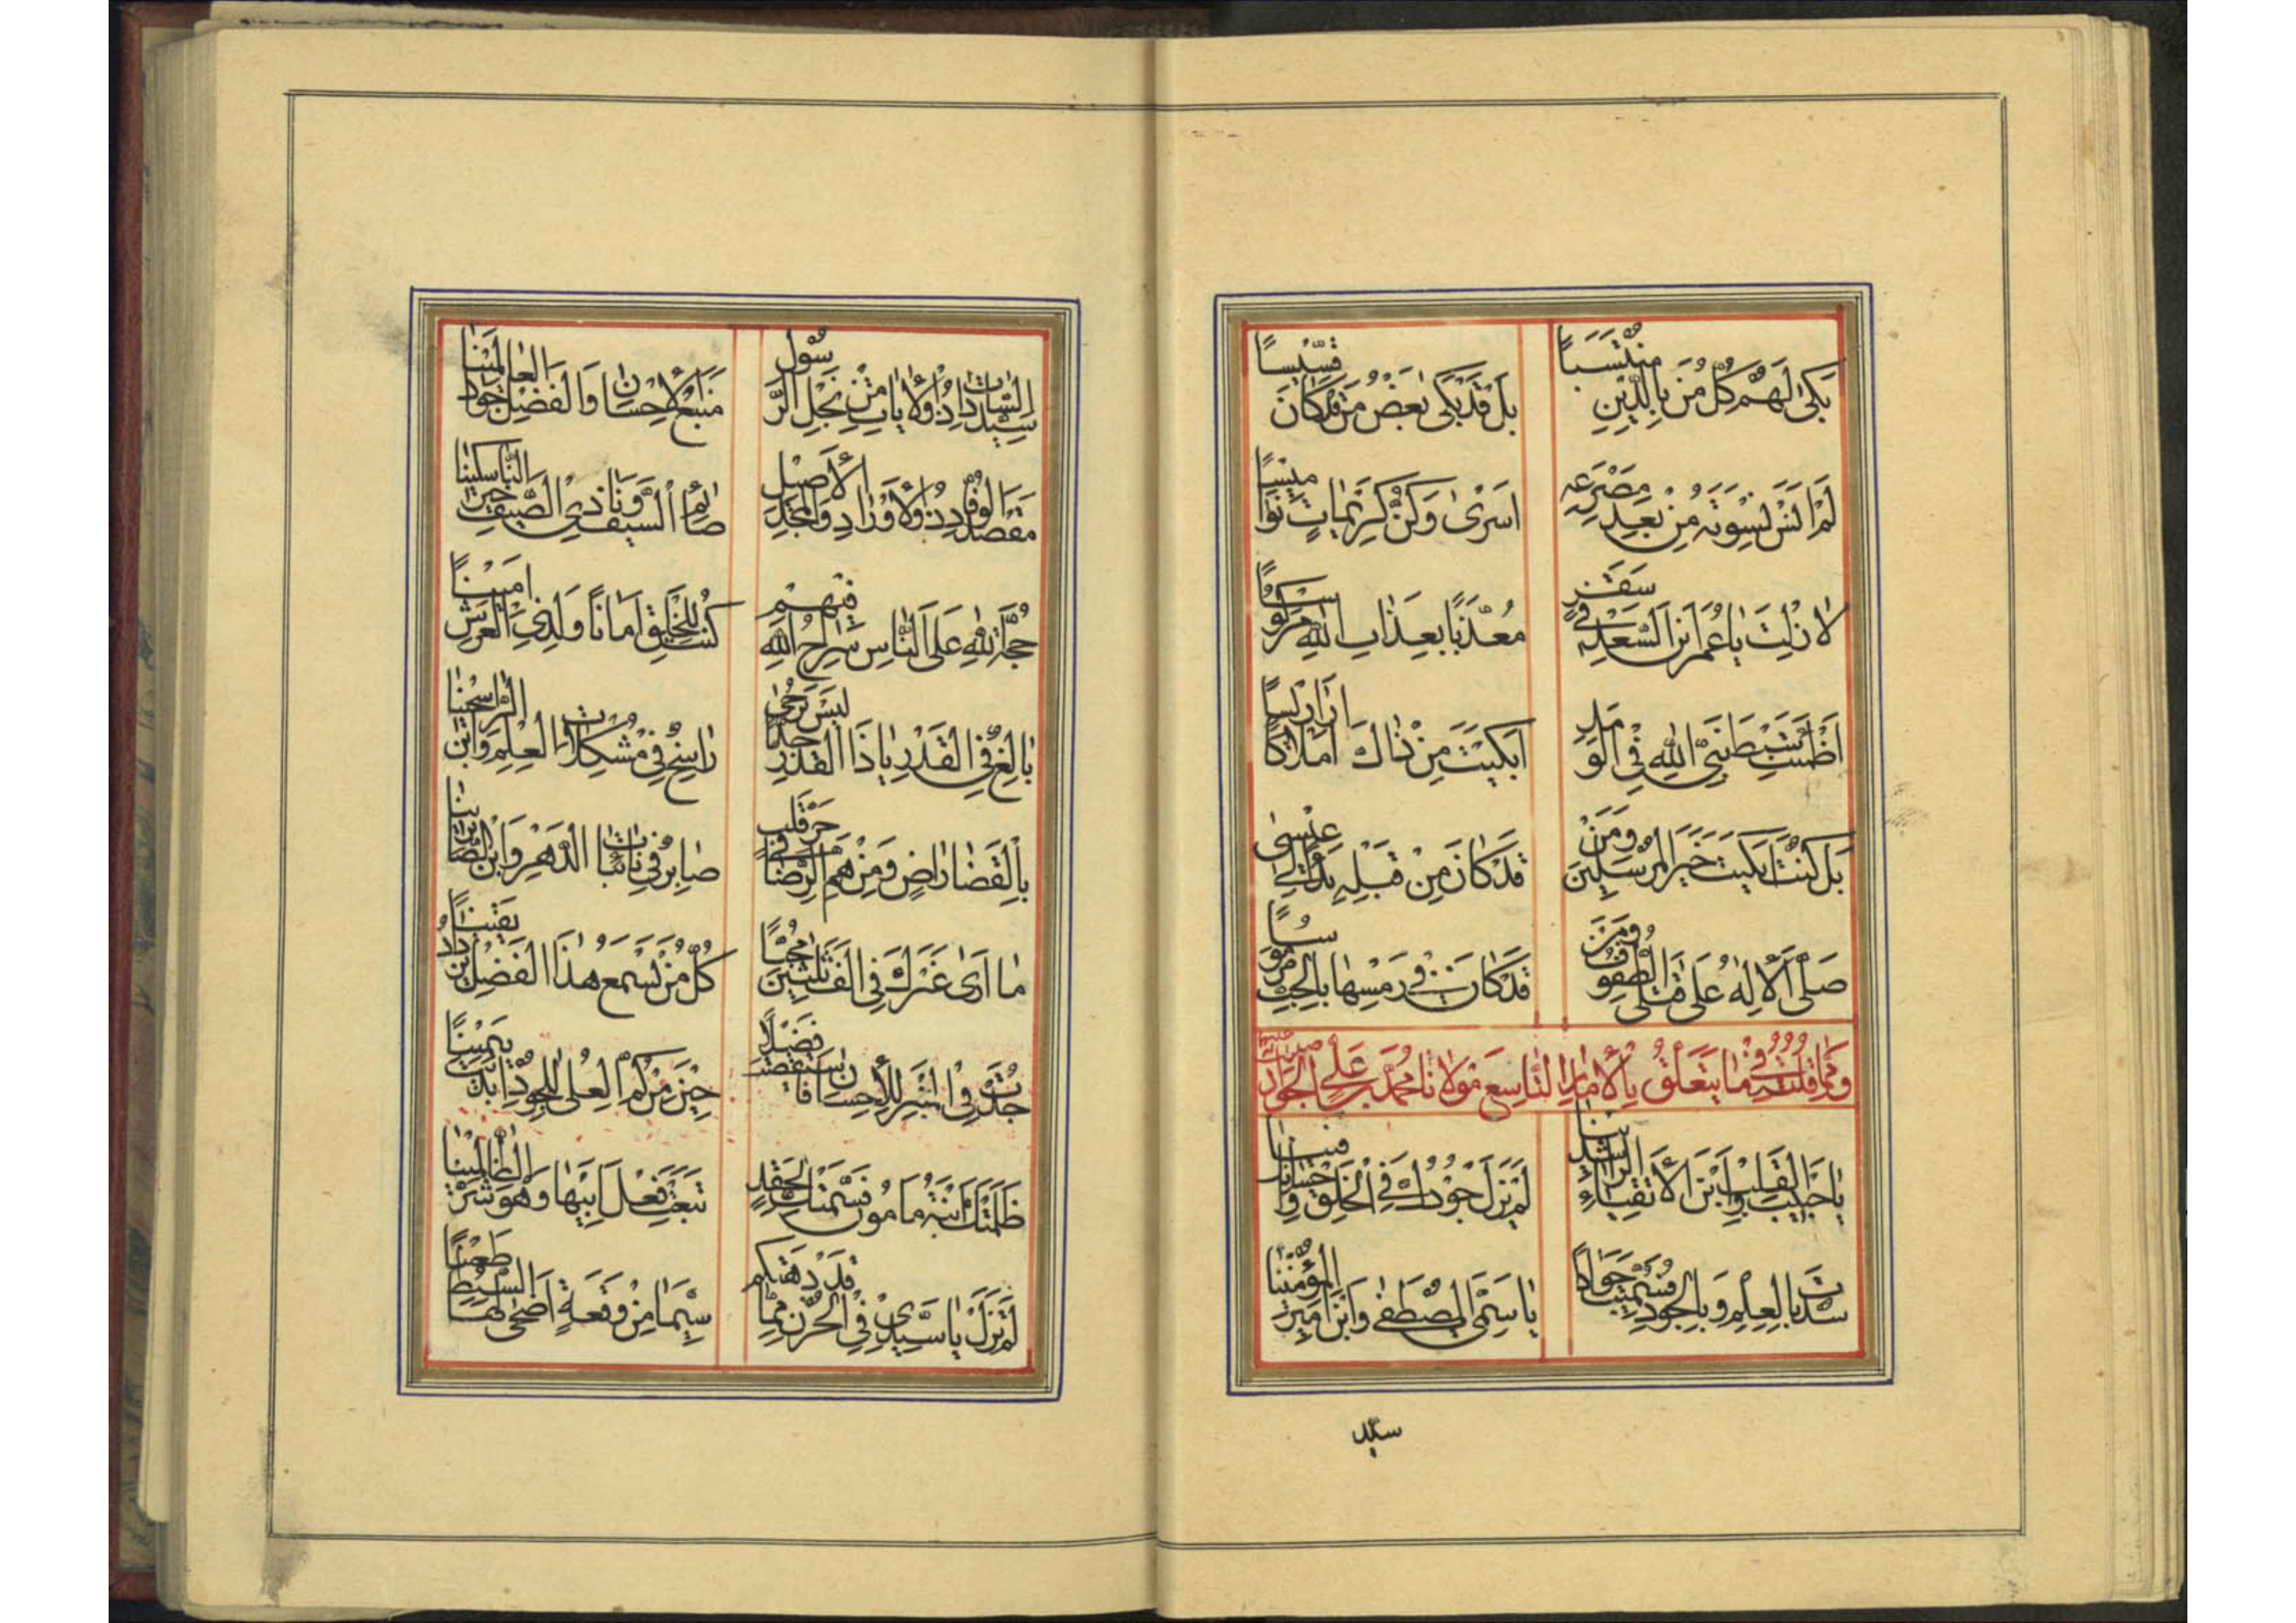 بَكىٰ لَهُمْ كُلُّ مَنْ بِالدِّينِ مُنْتَسَبًا بَلْ قَدْ بَكىٰ بَعْضُ مَنْ قَدْ كَانَ قِسِّيسًا
لَمْ اَنْسَ نِسْوَتَهُ مِنْ بَعْدِ مَصْرَعِهِ اَسْرىٰ وَكُنَّ كَرِيمَاتٍ نَوَامِيسًا
لَا زِلْتَ يَا عُمَرَ ابْنَ السَّعْدِ فِي سَقَرٍ مُعَذَّبًا بِعَذَابِ اللّٰهِ مَرْكُوسًا
سِبْطَ نَبِيِّ اللّٰهِ فِي الْوَلَدِ اَبْكَيْتَ مِنْ ذَاكَ اَمْلَاكًا
بَلْ كُنْتَ اَبْكَيْتَ خَيْرَ الْمُرْسَلِينَ وَمَنْ قَدْ كَانَ مِنْ قَبْلِهِ عِيْسىٰ
صَلَّى الْاِلٰهُ عَلىٰ قَتْلَى الطُّفُوفِ وَمَنْ قَدْ كَانَ فِي رَمْسِهَا بِالْحَبْسِ مَرْمُوسًا
وَمِمَّا قُلْتُ فِيمَا يَتَعَلَّقُ بِالْاِمَامِ التَّاسِعِ مَوْلَانَا مُحَمَّدِ بْنِ عَلِيٍّ الْجَوَادِ
يَا حَبِيبَ الْقَلْبِ وَابْنَ الْاَتْقِيَاءِ الرَّاشِدِينَا لَمْ يَزَلْ جُوْدُكَ فِي الْخَلْقِ
سُدْتَ بِالْعِلْمِ وَبِالْجُودِ فَسُمِّيتَ جَوَادًا يَا سَمِيَّ الْمُصْطَفىٰ وَابْنَ اَمِيرِ الْمُؤْمِنِينَا
سيّد
سَيِّدُ السَّادَاتِ وَالْاٰيَاتِ مِنْ نَجْلِ الرَّسُولِ مَنْبَعُ الْاِحْسَانِ وَالْفَضْلِ جَوَادُ الْعَالَمِينَا
مَقْصَدُ الْوُفَّادِ وَالْمَجْدِ الْاَصِيلِ صَائِمُ الصَّيْفِ النَّاسِكِينَا
حُجَّةُ اللّٰهِ عَلَى النَّاسِ سِرَاجُ اللّٰهِ فِيهِمْ كُنْتَ لِلْخَلْقِ اَمَانًا وَلِذِي الْعَرْشِ اَمِينًا
بَالِغٌ فِي الْقَدْرِ يَا ذَا الْقَدْرِ حَدًّا لَيْسَ يُرْجىٰ رَاسِخٌ فِي مُشْكِلَاتِ الْعِلْمِ وَابْنُ الرَّاسِخِينَا
بِالْقَضَا رَاضٍ وَمَنْ هَمُّ الرِّضَا صَابِرٌ فِي نَائِبَاتِ الدَّهْرِ وَابْنُ الصَّابِرِينَا
مَا اَرىٰ غَيْرَكَ فِي كُلُّ مَنْ يَسْمَعُ هٰذَا الْفَضْلَ يَزْدَادُ يَقِينًا
جُدْتَ فَضْلًا حِينَ مِنْ كُمِّ الْعُلىٰ لِلْجُوْدِ اَبْدَيْتَ يَمِينًا
ظَلَمَتْكَ ابْنَةُ مَأمُونَ فَسَمَّتْكَ لِحِقْدٍ تَبِعَتْ فِعْلَ اَبِيهَا وَهْوَ شَرُّ الظَّالِمِينَا
لَمْ نَزَلْ يَا سَيِّدِي فِي الْحُزْنِ مِمَّا قَدْ دَهَتْكُمْ سِيَّمَا مِنْ وَقْعَةٍ اَضْحىٰ لَهَا السِّبْطُ طَعِينًا